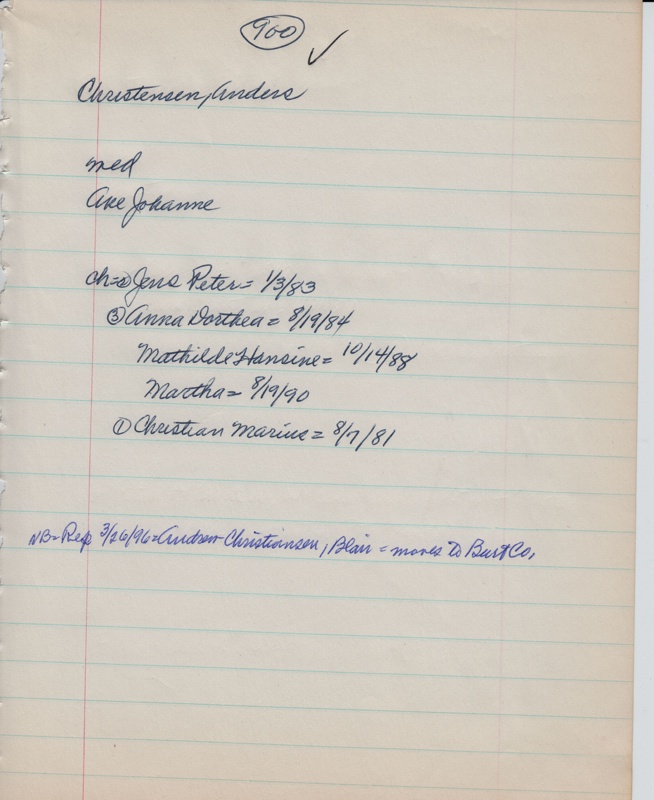 900 ✓
Christensen, Anders
med
Ane Johanne
ch= ② Jens Peter = 1/3/83
③ Anna Dorthea = 8/19/84
Mathilde Hansine = 10/14/88
Martha = 8/19/90
① Christian Marius = 8/7/81
NB = Rep 3/26/96 = Andrew Christiansen, Blair = moves to Burt Co.